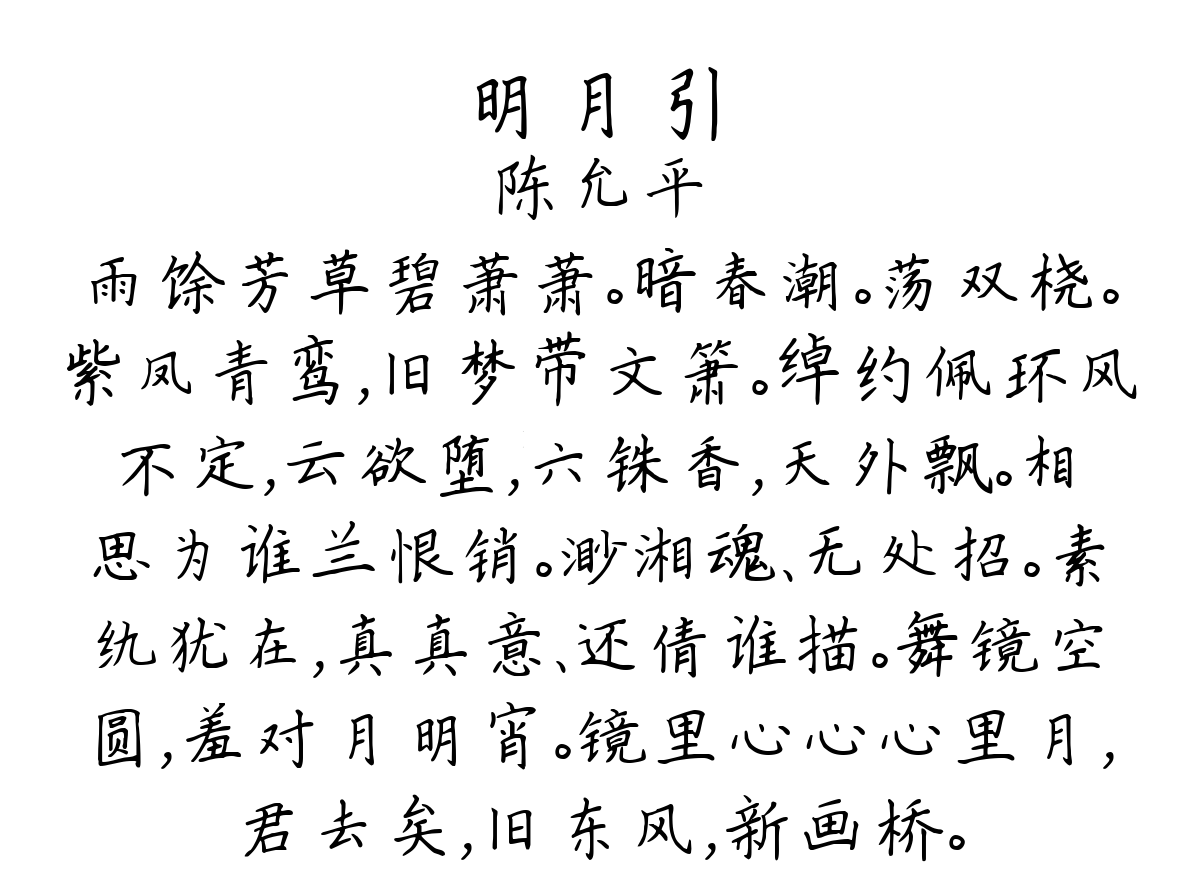 明月引
陈允平
雨馀芳草碧萧萧。暗春潮。荡双桡。
紫凤青鸾,旧梦带文箫。绰约佩环风
不定,云欲堕,六铢香,天外飘。相
思为谁兰恨销。渺湘魂、无处招。素
纨犹在,真真意、还倩谁描。舞镜空
圆,羞对月明宵。镜里心心心里月,
君去矣,旧东风,新画桥。